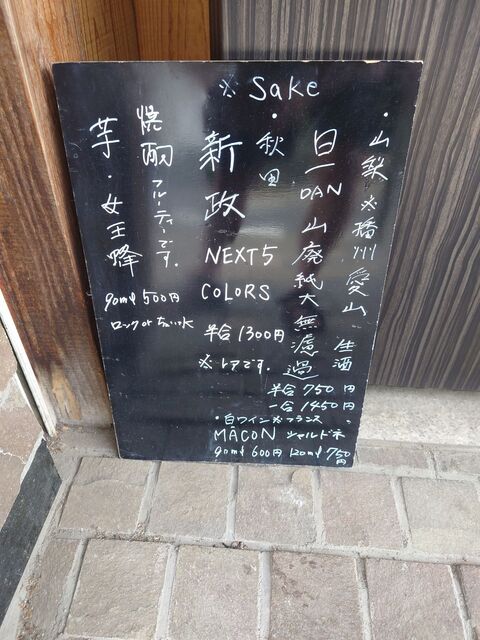 ※ Sake
・山梨 ※播州愛山
旦 DAN 山廃純大無濾過
生酒
半合 750円
一合 1450円
・秋田
新政
NEXT5
COLORS
半合 1300円
※レアです。
焼酎 フルーティーです。
芋・女王蜂
90ml 500円
ロック or ちょい水
・白ワイン ※フランス
MÂCON シャルドネ
90ml 600円 120ml 750円